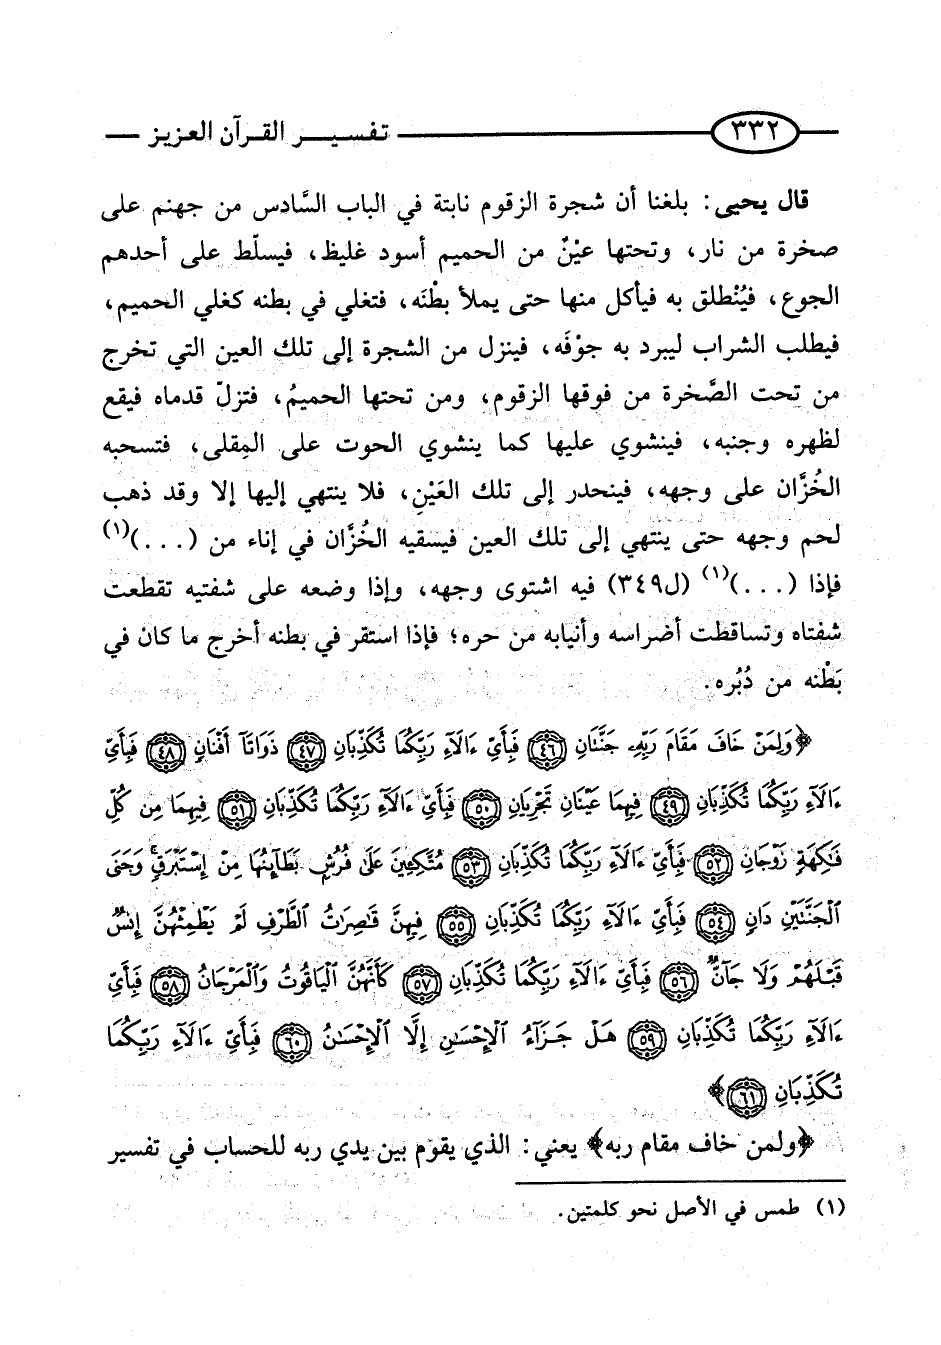 ٣٣٢ تفسير القرآن العزيز
قال يحيى: بلغنا أن شجرة الزقوم نابتة في الباب السَّادس من جهنم على
صخرة من نار، وتحتها عيْنٌ من الحميم أسود غليظ، فيسلّط على أحدهم
الجوع، فيُنْطلق به فيأكل منها حتى يملأ بطْنَه، فتغلي في بطنه كغلي الحميم،
فيطلب الشراب ليبرد به جوْفَه، فينزل من الشجرة إلى تلك العين التي تخرج
من تحت الصَّخرة من فوقها الزقوم، ومن تحتها الحميمُ، فتزلّ قدماه فيقع
لظهره وجنبه، فينشوي عليها كما ينشوي الحوت على المِقلى، فتسحبه
الخُزَّان على وجهه، فينحدر إلى تلك العَيْنِ، فلا ينتهي إليها إلا وقد ذهب
لحم وجهه حتى ينتهي إلى تلك العين فيسقيه الخُزَّان في إناء من (...)(١)
فإذا (...)(١) (ل٣٤٩) فيه اشتوى وجهه، وإذا وضعه على شفتيه تقطعت
شفتاه وتساقطت أضراسه وأنيابه من حره؛ فإذا استقر في بطنه أخرج ما كان في
بَطْنه من دُبُره.
﴿وَلِمَنْ خَافَ مَقَامَ رَبِّهِۦ جَنَّتَانِ ٤٦ فَبِأَيِّ ءَالَآءِ رَبِّكُمَا تُكَذِّبَانِ ٤٧ ذَوَاتَآ أَفْنَانٍ ٤٨ فَبِأَيِّ
ءَالَآءِ رَبِّكُمَا تُكَذِّبَانِ ٤٩ فِيهِمَا عَيْنَانِ تَجْرِيَانِ ٥٠ فَبِأَيِّ ءَالَآءِ رَبِّكُمَا تُكَذِّبَانِ ٥١ فِيهِمَا مِن كُلِّ
فَٰكِهَةٍ زَوْجَانِ ٥٢ فَبِأَيِّ ءَالَآءِ رَبِّكُمَا تُكَذِّبَانِ ٥٣ مُتَّكِـِٔينَ عَلَىٰ فُرُشٍۭ بَطَآئِنُهَا مِنْ إِسْتَبْرَقٍۚ وَجَنَى
ٱلْجَنَّتَيْنِ دَانٍ ٥٤ فَبِأَيِّ ءَالَآءِ رَبِّكُمَا تُكَذِّبَانِ ٥٥ فِيهِنَّ قَاصِرَاتُ ٱلطَّرْفِ لَمْ يَطْمِثْهُنَّ إِنسٌ
قَبْلَهُمْ وَلَا جَآنٌّ ٥٦ فَبِأَيِّ ءَالَآءِ رَبِّكُمَا تُكَذِّبَانِ ٥٧ كَأَنَّهُنَّ ٱلْيَاقُوتُ وَٱلْمَرْجَانُ ٥٨ فَبِأَيِّ
ءَالَآءِ رَبِّكُمَا تُكَذِّبَانِ ٥٩ هَلْ جَزَآءُ ٱلْإِحْسَٰنِ إِلَّا ٱلْإِحْسَٰنُ ٦٠ فَبِأَيِّ ءَالَآءِ رَبِّكُمَا
تُكَذِّبَانِ ٦١﴾
﴿ولمن خاف مقام ربه﴾ يعني: الذي يقوم بين يدي ربه للحساب في تفسير
(١) طمس في الأصل نحو كلمتين.